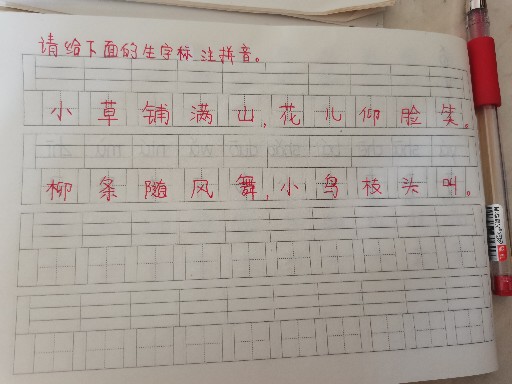 请给下面的生字标注拼音。
小草铺满山,花儿仰脸笑。
柳条随风舞,小鸟枝头叫。